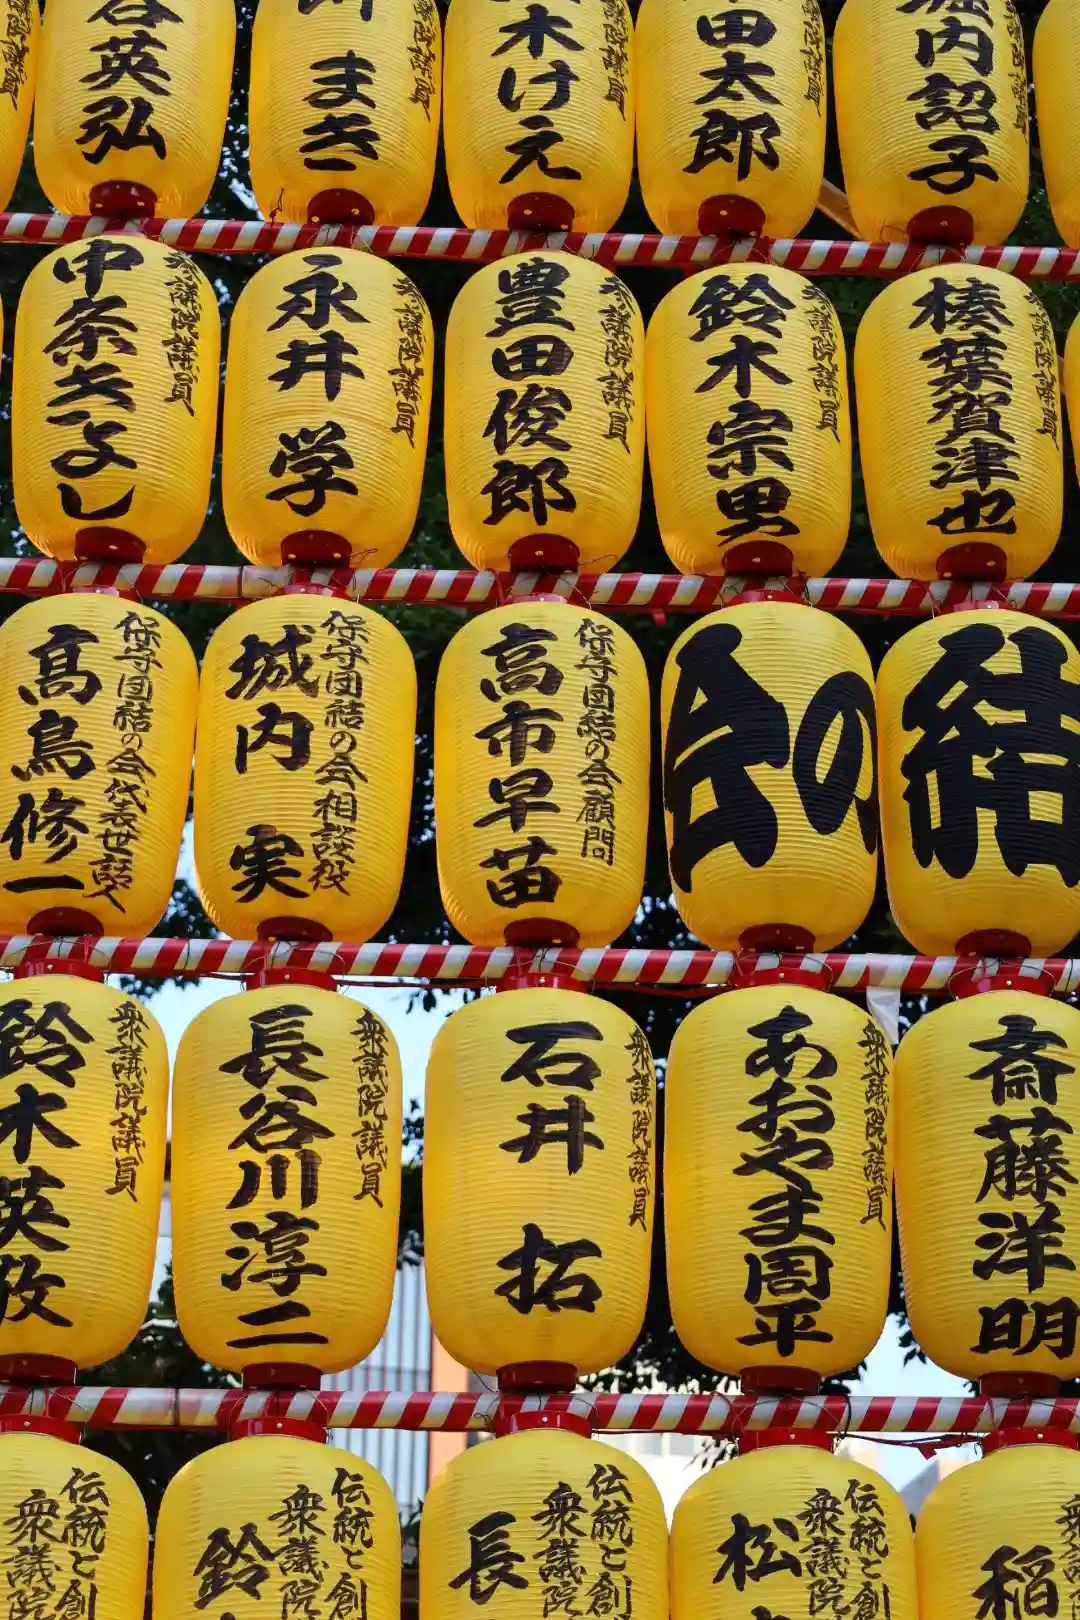 内詔子
議院議員
田太郎
議院議員
木けえ
議院議員
川まき
谷英弘
榛葉賀津也
参議院議員
鈴木宗男
参議院議員
豊田俊郎
参議院議員
永井学
参議院議員
中条きよし
結
の会
保守団結の会顧問
高市早苗
保守団結の会相談役
城内実
保守団結の会代表世話人
髙鳥修一
斎藤洋明
衆議院議員
あおやま周平
衆議院議員
石井拓
衆議院議員
長谷川淳二
衆議院議員
鈴木英敬
稲
伝統と創
衆議院
松
伝統と創
衆議院
長
伝統と創
衆議院
鈴
伝統と
衆議院